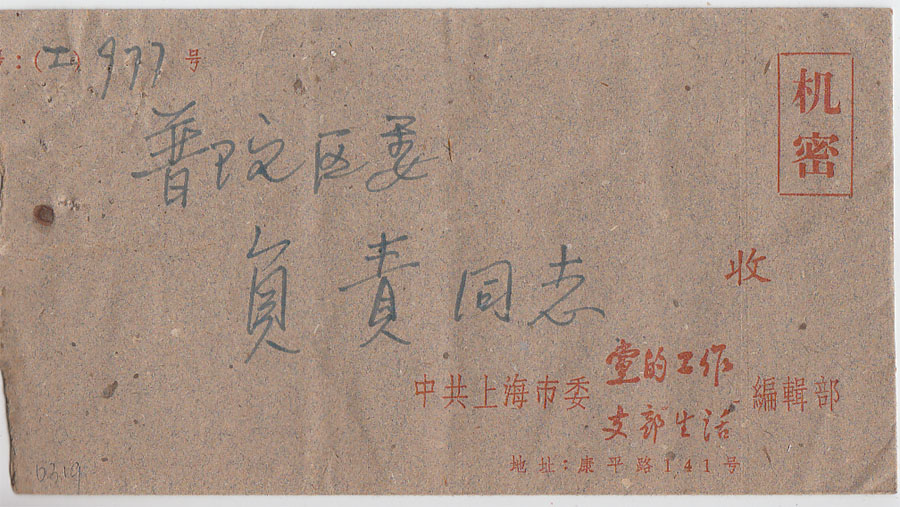 ：（工）977号
机密
普陀区委
負責同志
收
中共上海市委 党的工作 支部生活 編輯部
地址：康平路141号
6319